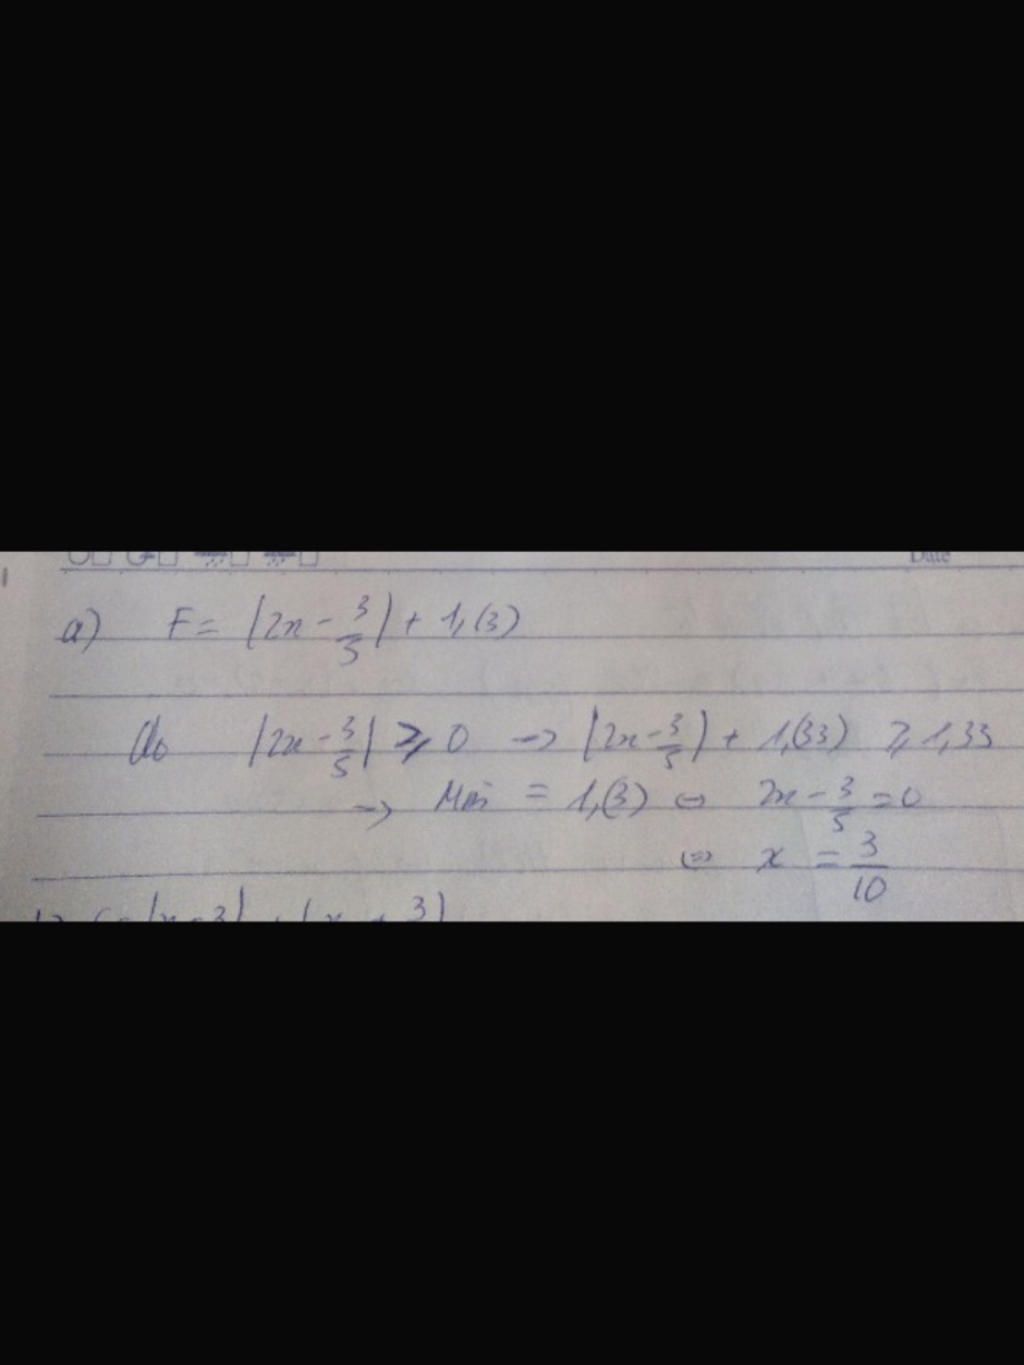 Date
a) F = |2x - 3/5| + 1,(3)
do |2x - 3/5| ⩾ 0 → |2x - 3/5| + 1,(33) ⩾ 1,33
→ Min = 1,(3) ⇔ 2x - 3/5 = 0
⇔ x = 3/10